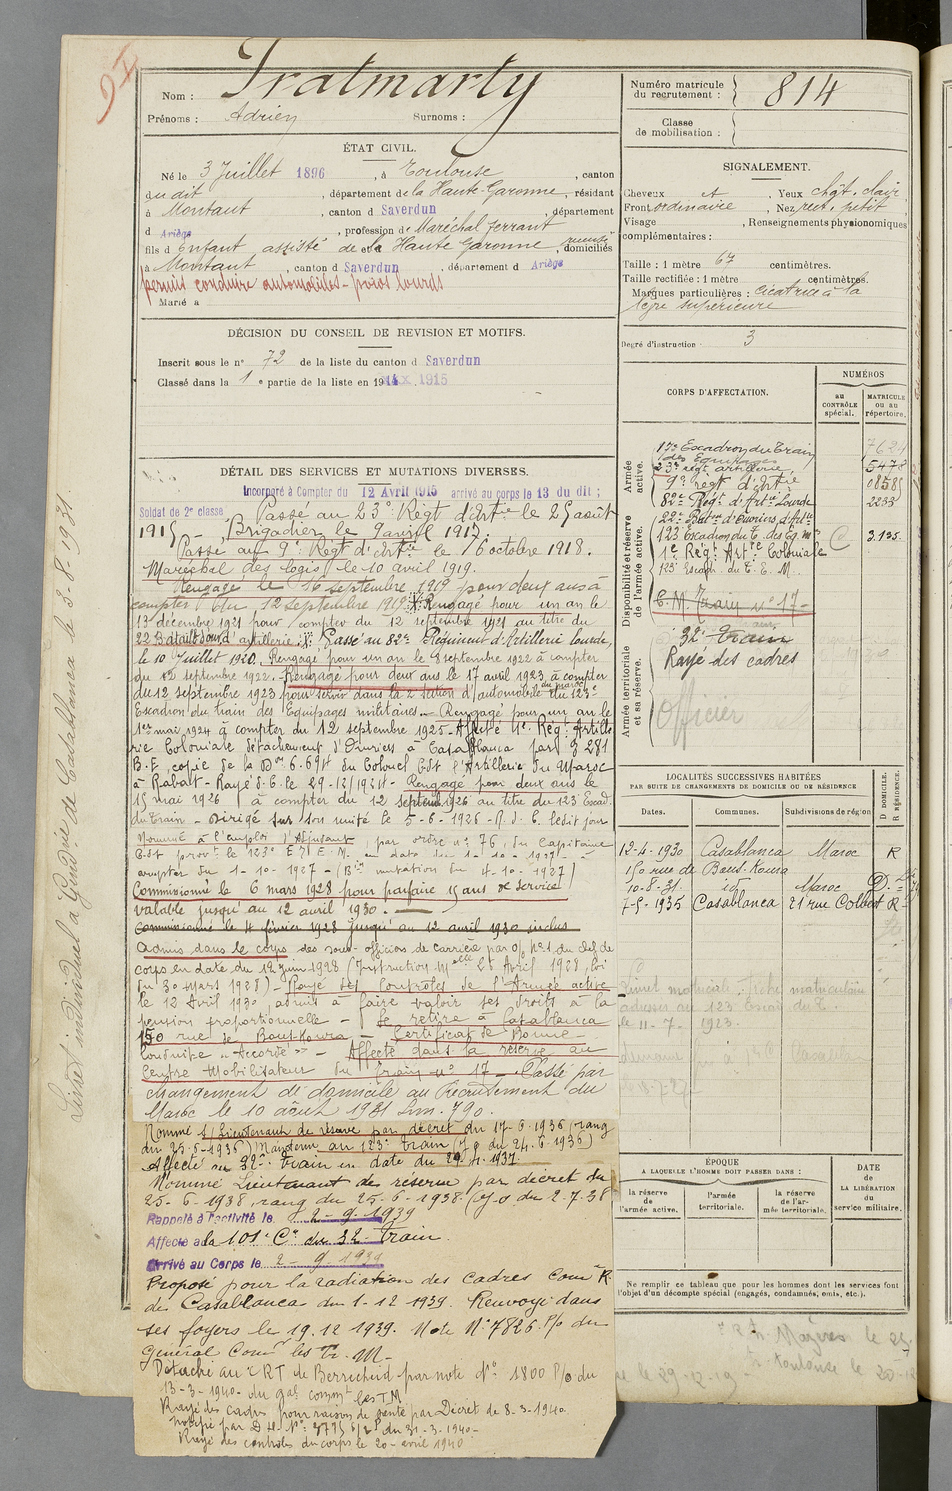 91
Nom : Pratmarty
Prénoms : Adrien Surnoms :
ÉTAT CIVIL.
Né le 3 Juillet 1896, à Toulouse, canton
du dit, département de la Haute-Garonne, résidant
à Montaut, canton d Saverdun, département
d Ariège, profession de Maréchal ferrant
fils d Enfant assisté de la Haute Garonne, domiciliés
à Montaut, canton d Saverdun, département d Ariège
permis conduire automobiles - poids lourds
Marié à
DÉCISION DU CONSEIL DE REVISION ET MOTIFS.
Inscrit sous le n° 72 de la liste du canton d Saverdun
Classé dans la 1e partie de la liste en 1915
DÉTAIL DES SERVICES ET MUTATIONS DIVERSES.
Incorporé à Compter du 12 Avril 1915 arrivé au corps le 13 du dit ;
Soldat de 2e classe Passé au 23e Régt d'Artie le 25 août
1915 - Brigadier le 9 avril 1917.
Passé au 9e Régt d'Artie le 16 octobre 1918.
Maréchal des logis le 10 avril 1919.
Rengagé le 16 septembre 1919 pour deux ans à
compter du 12 septembre 1919. Rengagé pour un an le
13 décembre 1921 pour compter du 12 septembre 1921 au titre du
22 Bataillon d'artillerie. Passé au 82e Régiment d'Artillerie lourde,
le 10 Juillet 1920. Rengagé pour un an le 8 septembre 1922 à compter
du 12 septembre 1922. Rengagé pour deux ans le 17 avril 1923 à compter
du 12 septembre 1923 pour servir dans la 2e section d'automobile du Maroc du 123e
Escadron du train des Equipages militaires. Rengagé pour un an le
1er mai 1924 à compter du 12 septembre 1925. Affecté 1e Rég. Artille
rie Coloniale détachement d'Ouvriers à Casablanca par 9 281
B.E. copie de la Don 6.694 du Colonel Cdt l'Artillerie du Maroc
à Rabat - Rayé d. C. le 29-12-1924 - Rengagé pour deux ans le
15 mai 1926 à compter du 12 septembre 1926 au titre du 123 Escad.
du Train - Dirigé sur son unité le 5-6-1926 - R. d. C. ledit jour
Nommé à l'emploi d'Adjudant par ordre n° 76 du Capitaine
Cdt provt le 123e E T E M en date du 1-10-1927 - à
compter du 1-10-1927 - (Bin mutation du 4-10-1927)
Commissionné le 6 mars 1928 pour parfaire 15 ans de service
valable jusqu'au 12 avril 1930.
Commissionné le 4 février 1928 jusqu'au 12 avril 1930 inclus
Admis dans le corps des sous-officiers de carrière par o/ n° 1 du chef de
corps en date du 12 juin 1928 (Instruction Melle 25 Avril 1928, loi
du 30 mars 1928) - Rayé des Contrôles de l'Armée active
le 12 Avril 1930, admis à faire valoir ses droits à la
pension proportionnelle - Se retire à Casablanca
150 rue de Bouskoura - Certificat de Bonne
Conduite "Accordé" - Affecté dans la réserve au
Centre Mobilisateur du train n° 17 - Passé par
changement de domicile au Recrutement du
Maroc le 10 août 1931 Lm. 790.
Nommé S/Lieutenant de réserve par décret du 17-6-1936 (rang
du 25-5-1936) Maintenu au 123e train (J O du 24.6.1936)
Affecté au 32e train en date du 29.4.1937.
Nommé Lieutenant de réserve par décret du
25-6-1938, rang du 25-6-1938 (J O du 2-7-38
Rappelé à l'activité le 2-9-1939
Affecté à la 101e Cie du 32e Train.
Arrivé au Corps le 2-9-1939
Proposé pour la radiation des cadres Comon R.
de Casablanca du 1-12-1939. Renvoyé dans
ses foyers le 19.12.1939. Note N° 7826 P/o du
Général Comt les Tr. M-
Détaché au C R T de Berrechid par note N° 1800 P/o du
13-3-1940 du Gal commt les T M
Rayé des cadres pour raison de santé par Décret de 8-3-1940
notifié par D M. N° 3795 du 31-3-1940-
Rayé des contrôles du corps le 20 avril 1940
Livret individuel à Gendrie de Casablanca le 3-8-1931
Numéro matricule du recrutement : 814
Classe de mobilisation :
SIGNALEMENT.
Cheveux ct, Yeux chât. clair
Front ordinaire, Nez rect. petit
Visage, Renseignements physionomiques
complémentaires :
Taille : 1 mètre 67 centimètres.
Taille rectifiée : 1 mètre centimètres.
Marques particulières : cicatrice à la
lèvre supérieure
Degré d'instruction : 3
CORPS D'AFFECTATION.
NUMÉROS
AU CONTRÔLE spécial.
MATRICULE OU AU répertoire.
Armée active.
17e Escadron du Train des Equipages 7624
23e regt artillerie, 5478
9e regt d'Artie 0858
82e Regt d'Artie Lourde 2233
Disponibilité et réserve de l'armée active.
22e Baton d'Ouvriers d'Artie
123 Escadron du T. des Eq. Mres C 3.195.
1e Régt Artie Coloniale
123 Escad. du T. E. M.
C. M. Train n° 17
Armée territoriale et sa réserve.
32e train
Rayé des cadres
Officier
LOCALITÉS SUCCESSIVES HABITÉES
PAR SUITE DE CHANGEMENTS DE DOMICILE OU DE RÉSIDENCE
Dates. Communes. Subdivisions de région D DOMICILE. R RÉSIDENCE.
12-4-1930 Casablanca Maroc R
150 rue de Bous-Koura
10-8-31. id Maroc D.
7-5-1935 Casablanca 21 rue Colbert R
Livret matricule. Fiche matriculaire
adressés au 123 Escad du T.
le 11-7-1923.
ÉPOQUE
A LAQUELLE L'HOMME DOIT PASSER DANS :
la réserve de l'armée active.
l'armée territoriale.
la réserve de l'armée territoriale.
DATE DE LA LIBÉRATION du service militaire.
Ne remplir ce tableau que pour les hommes dont les services font
l'objet d'un décompte spécial (engagés, condamnés, omis, etc.).
Mazères le
toulouse le
le 29-12-19